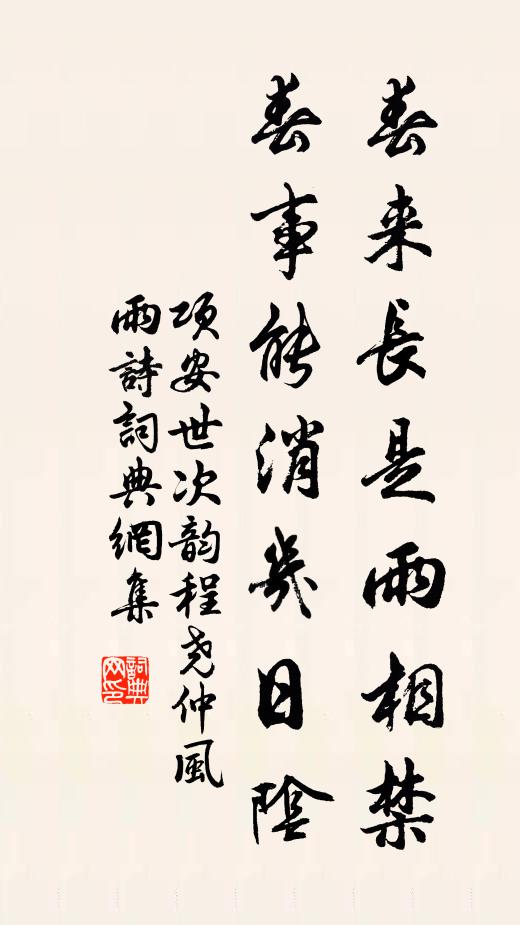 春来長是雨相禁
春事能消幾日陰
項安世次韵程尧仲風
雨詩詞典網集
詞典网印